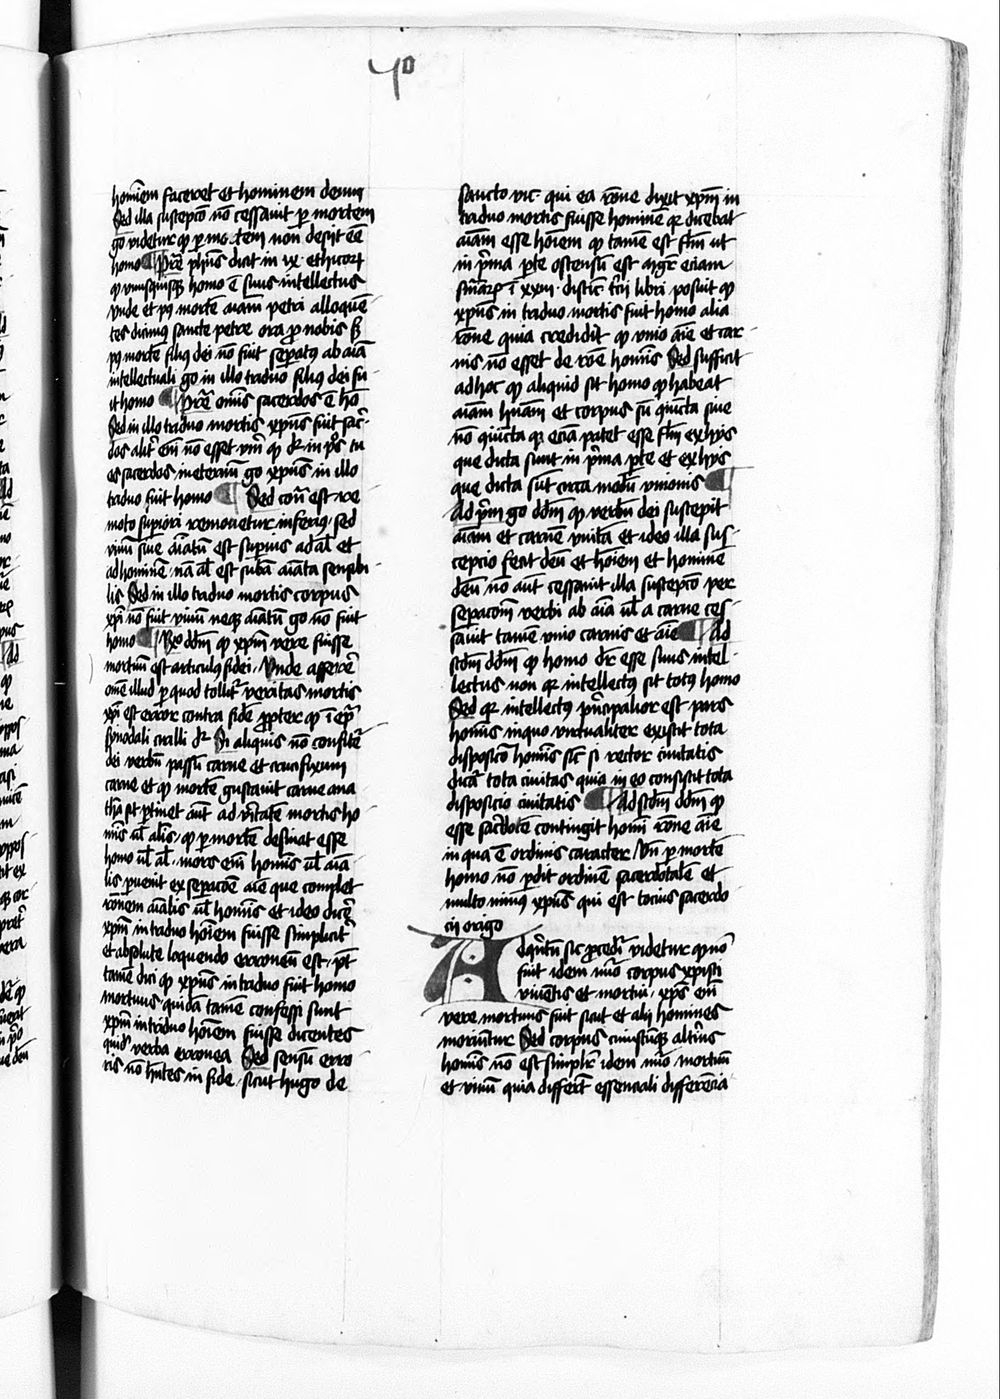 40
hoīem faceret et hominem deum
Sed illa suscepcō nō cessavit ꝑ mortem
gͦ videtur ꝙ ꝑ mortem non desiit eē
homo ¶ Pret̄ᵃ ph̄us dicit in ix. ethicoꝝ
ꝙ vnusquisqꝫ homo ē suus intellectus
vnde et pꝰ mortē aīam petri alloquē
tes dicimꝰ sancte petre ora ꝓ nobis ſꝫ
pꝰ mortē filiꝰ dei nō fuit sepatꝰ ab aīa
intellectuali gͦ in illo triduo filiꝰ dei fu
it homo ¶ Pret̄ᵃ omīs sacerdos ē hō
Sed in illo triduo mortis xp̄us fuit sac̄
dos alit̄ em̄ nō esset verū ꝙ dr̄ in pͦs tu
es sacerdos in eternū gͦ xp̄us in illo
triduo fuit homo ¶ Sed cōtᵃ est re
moto supiori remouetur inferiꝰ. sed
viuū siue aīatū est supius ad aīal et
ad hominē. nā aīal est subā aīata sensibi
lis Sed in illo triduo mortis corpus
xp̄i nō fuit viuū neqꝫ aīatū gͦ nō fuit
homo ¶ Rͦ ddm̄ ꝙ xp̄um vere fuisse
mortuū est articulꝰ fidei. Vnde asserer̄
omē illud ꝑ quod tollit̄ veritas mortis
xp̄i est error contra fidē ꝓpter ꝙ ī epᵃ
synodali cirilli dr̄ Si aliquis nō confitet̄
dei verbū passū carne et crucifixum
carne et ꝙ mortē gustauit carne ana
thᵃ sit ꝑtinet aūt ad vītatē mortis ho
mīs ul̄ aīalis. ꝙ ꝑ mortē desinat esse
homo ul̄ aīal. mors em̄ homīs ul̄ aīa
lis ꝓuenit ex sepacōe aīe que complet
rōnem aīalis ul̄ homīs et ideo dicē
xp̄m in triduo hoīem fuisse simplicit̄
et absolute loquendo erroneū est. pt̄
tamē dici ꝙ xp̄us in triduo fuit homo
mortuus. quidā tamē confessi sunt
xp̄m in triduo hoīem fuisse dicentes
quidē verba erronea Sed sensū erro
ris nō hn̄tes in fide. sicut hugo de
sancto vic. qui ea rōne dixit xp̄m in
triduo mortis fuisse hominē qꝛ dicebat
aīam esse hoīem ꝙ tamē est flm̄ ut
in pͥma ꝑte ostensū est mgr̄ etiam
sniāꝝ ī xxii. distic̄ tͥtii libri posuit ꝙ
xp̄us in triduo mortis fuit homo alia
rōne quia credidit ꝙ vnio aīe et car
nis nō esset de rōe homīs Sed sufficit
ad hoc ꝙ aliquid sit homo ꝙ habeat
aīam huᵃm et corpus siᵘ cōiūcta siue
nō cōiūcta qꝫ eciā patet esse flm̄ ex hijs
que dicta sunt in pͥma ꝑte et ex hijs
que dicta sūt circa modū vnionis ¶
Ad pͥm gͦ ddm̄ ꝙ verbū dei suscepit
aīam et carnē vnitā et ideo illa sus
cepcio fecit deū et hoīem et hominē
deū nō aūt cessauit illa suscepcō per
sepacōm verbi ab aīa ul̄ a carne ces
sauit tamē vnio carnis et aīe ¶ Ad
scdm̄ ddm̄ ꝙ homo dr̄ esse suus intel
lectus non qꝛ intellectꝰ sit totꝰ homo
Sed qꝛ intellectꝰ pͥncipalior est pars
homīs in quo virtualiter existit tota
disposicō homīs sic̄ si rector ciuitatis
dicat̄ tota ciuitas quia in eo consistit tota
disposicio ciuitatis ¶ Ad scdm̄ ddm̄ ꝙ
esse sac̄dotē contingit homī rōne aīe
in qua ē ordinis caracter. Vn̄ ꝑ mortē
homo nō ꝑdit ordinē sacerdotalē et
multo minꝰ xp̄us qui est tocius sacerdo
cij origo
Ad qͥntū sic ꝓcedit̄ videtur ꝙ nō
fuit idem nūͦ corpus xpisti
viuētis et mortui. xp̄us em̄
vere mortuus fuit sicut et alij homines
moriūtur Sed corpus cuiuscūqꝫ altīus
homīs nō est simplr̄ idem nūͦ mortuū
et viuū quia differt̄ essenciali differēcia